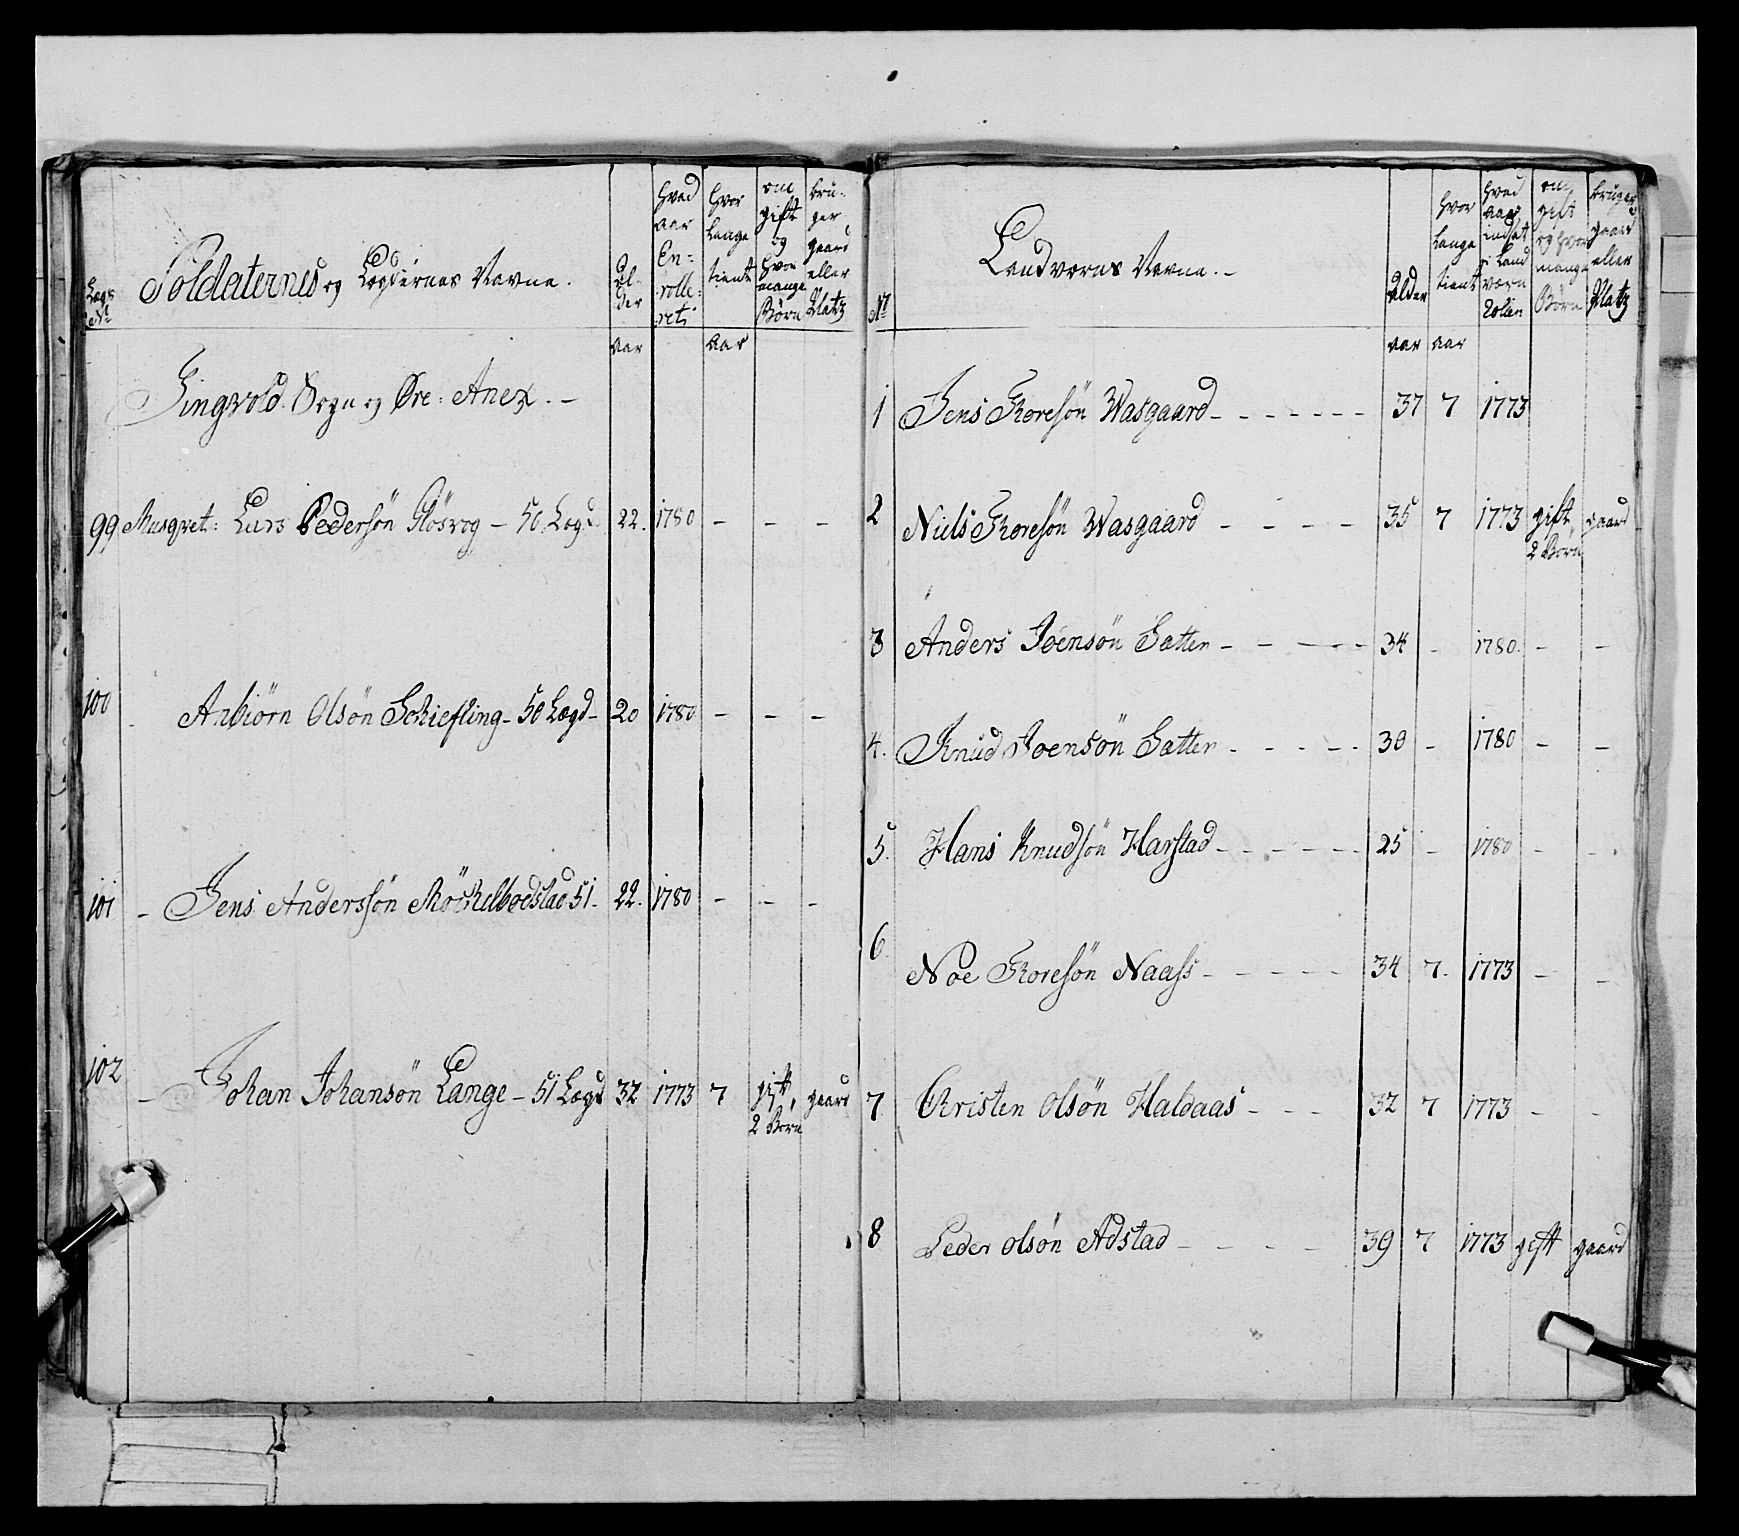 Lægs No
Soldaternes og Lægdernes Navne.
Al-
der
hvad
aar
En-
rolle-
ret
hvor
lange
tient
om
gift
og
hvor
mange
Børn
bru-
ger
gaard
eller
Platz
aar
aar
Tingvold Sogn og Øre: Anex. -
99 Musqvet: Lars Pedersön Flösvog - 50 Lægd 22. 1780 - - -
100 - Anbiörn Olsön Schiefling - 50 Lægd - 20 1780 - - -
101 - Jens Anderssön 51. 22. 1780 - - -
102 - Johan Johansön Lange - 51 Lægd 32 1773 7 gift, gaard
2 Börn
No
Landværns Navne. -
Alder
hvor
lange
tient
hvad
aar
indsat
i Land
værn
Rollen
om
gift
og hvor
mange
Børn
bruger
gaard
eller
Platz
aar aar
1 Jens Toresön Wasgaard - - - - - - - 37 7 1773
2 Niels Toresön Wasgaard - - - - - 35 7 1773 gift, gaard
2 Börn
3 Anders Joensön Sætter - - - - - 34 - 1780. - -
4. Knud Joensön Sætter - - - - - 30 - 1780 - -
5. Hans Knudsön Harstad - - - - - - 25 - 1780 - -
6 Noe Toresön Naass - - - - - 34 7. 1773 - -
7. Christen Olsön Haldaas - - - 32 7 1773 - -
8 Peder Olsön Adstad - - - - - 39 7 1773 gift gaard